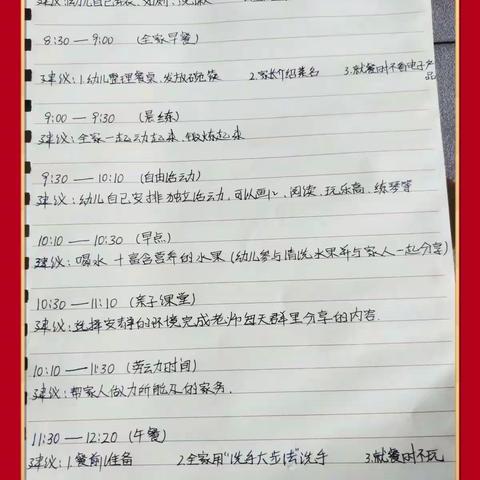 建议：幼儿自己
8:30—9:00 (全家早餐)
建议：1.幼儿整理餐桌、发放碗筷 2.家长介绍菜名 3.就餐时不看电子产品
9:00—9:30 (晨练)
建议：全家一起动起来，锻炼起来
9:30—10:10 (自由活动)
建议：幼儿自己安排独立活动，可以画画、阅读、玩乐高、练琴等
10:10—10:30 (早点)
建议：喝水+富含营养的水果(幼儿参与清洗水果并与家人一起分享)
10:30—11:10 (亲子课堂)
建议：选择安静的环境完成老师每天群里分享的内容.
10:10—11:30 (劳动时间)
建议：帮家人做力所能及的家务.
11:30—12:20 (午餐)
建议：1.餐前准备 2.全家用"洗手大步法"洗手 3.就餐时不玩